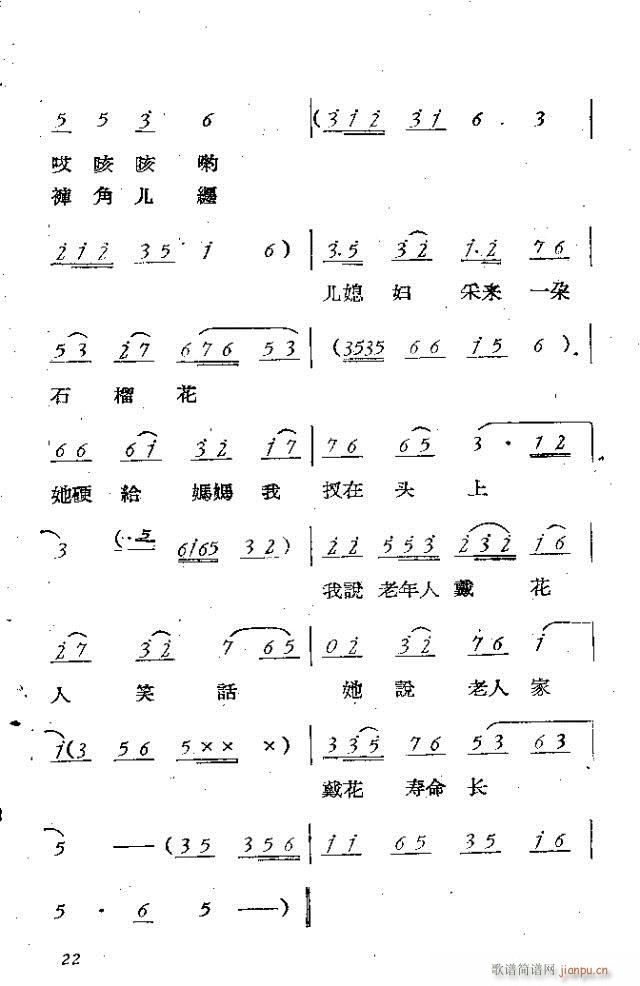 5 5 3 6 | (3 1 2 3 1 6 . 3 |
哎 咳 咳 喲
褲 角 儿 纏
2 1 2 3 5 1 6 ) | 3. 5 3 2 1. 2 7 6 |
儿媳 妇 采来 一朶
5 3 2 7 6 7 6 5 3 | (3535 6 6 1 5 6 ) |
石 榴 花
6 6 6 1 3 2 1 7 | 7 6 6 5 3 · 1 2 |
她硬 給 媽媽 我 扠在 头 上
3 (·· 5 6165 3 2 ) | 2 2 5 5 3 2 3 2 1 6 |
我說 老年人 戴 花
2 7 3 2 7 6 5 | 0 2 3 2 7 6 1 |
人 笑 話 她 說 老人 家
1 (3 5 6 5 × × ×) | 3 3 5 7 6 5 3 6 3 |
戴花 寿命 长
5 —— (3 5 3 5 6 | 1 1 6 5 3 5 1 6 |
5 · 6 5 ——) ‖
22
歌谱简谱网 jianpu.cn